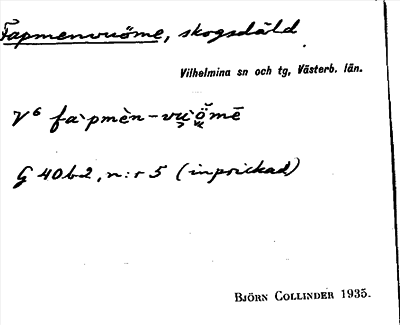 Fapmenvuöme, skogsdäld.
Vilhelmina sn och tg, Västerb. län.
V⁶ fa`pmèn-vu̯`ö̯̆mē
G 40b2, n:r 5 (inprickad)
BJÖRN COLLINDER 1935.